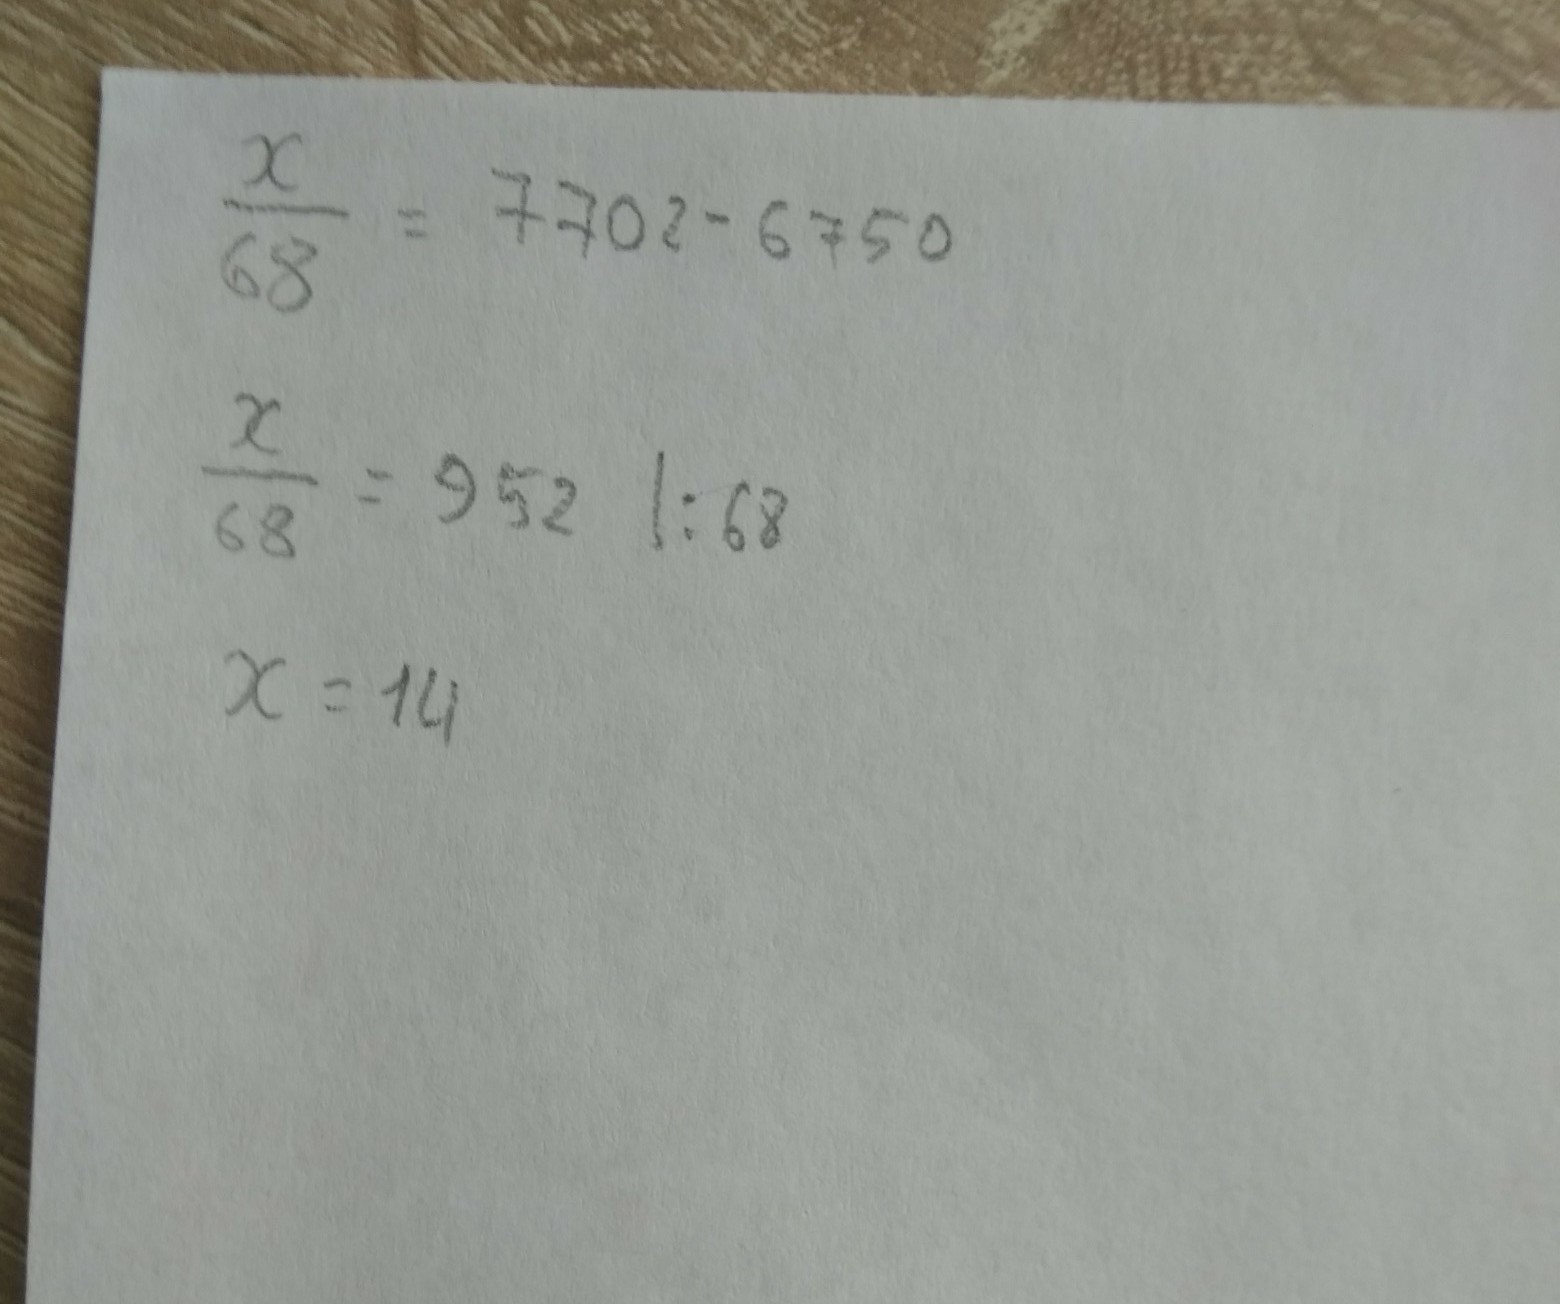 x/68 = 7702 - 6750
x/68 = 952 |: 68
x = 14